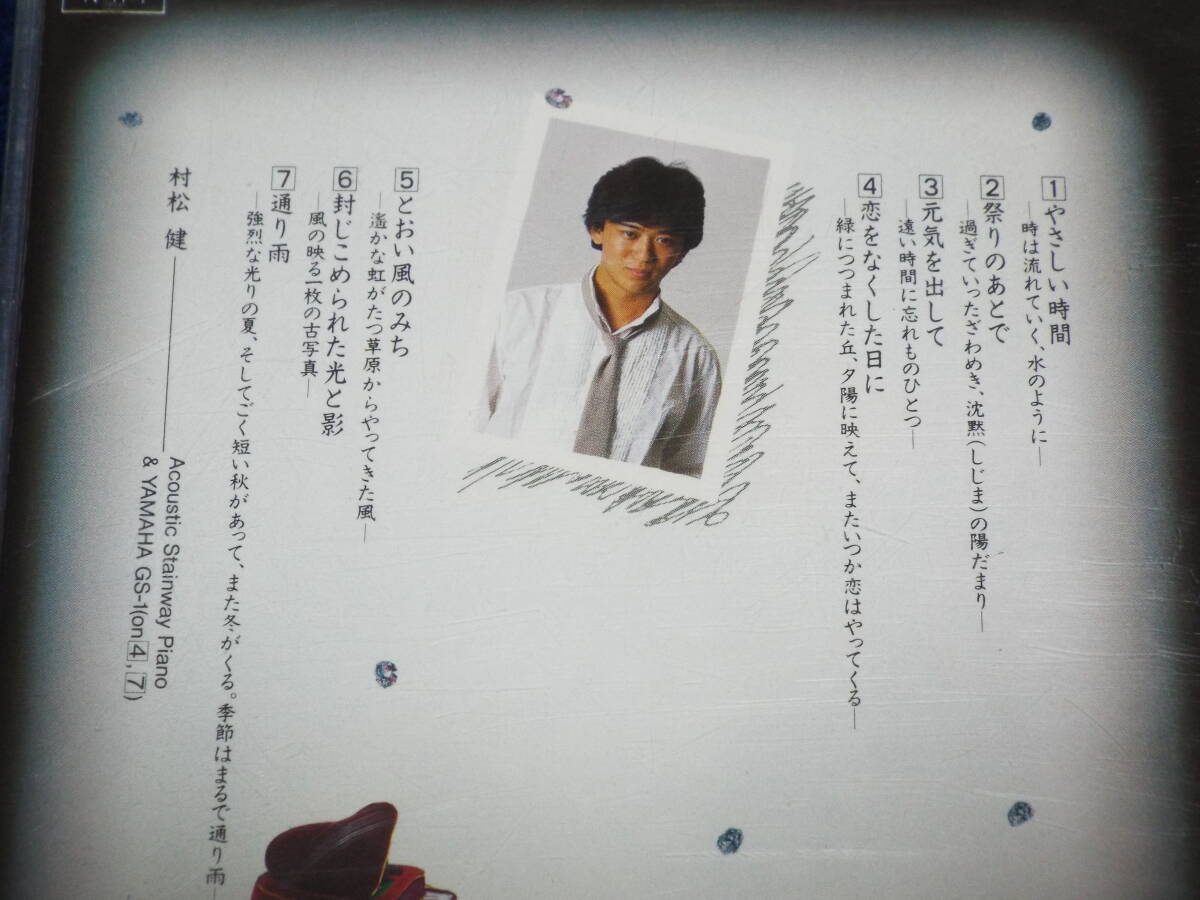 1 やさしい時間
―時は流れていく、水のように―
2 祭りのあとで
―過ぎていったざわめき、沈黙(しじま)の陽だまり―
3 元気を出して
―遠い時間に忘れものひとつ―
4 恋をなくした日に
―緑につつまれた丘、夕陽に映えて、またいつか恋はやってくる―
5 とおい風のみち
―遙かな虹がたつ草原からやってきた風―
6 封じこめられた光と影
―風の映る一枚の古写真―
7 通り雨
―強烈な光りの夏、そしてごく短い秋があって、また冬がくる。季節はまるで通り雨―
村松 健 ――― Acoustic Stainway Piano
& YAMAHA GS-1(on 4, 7)